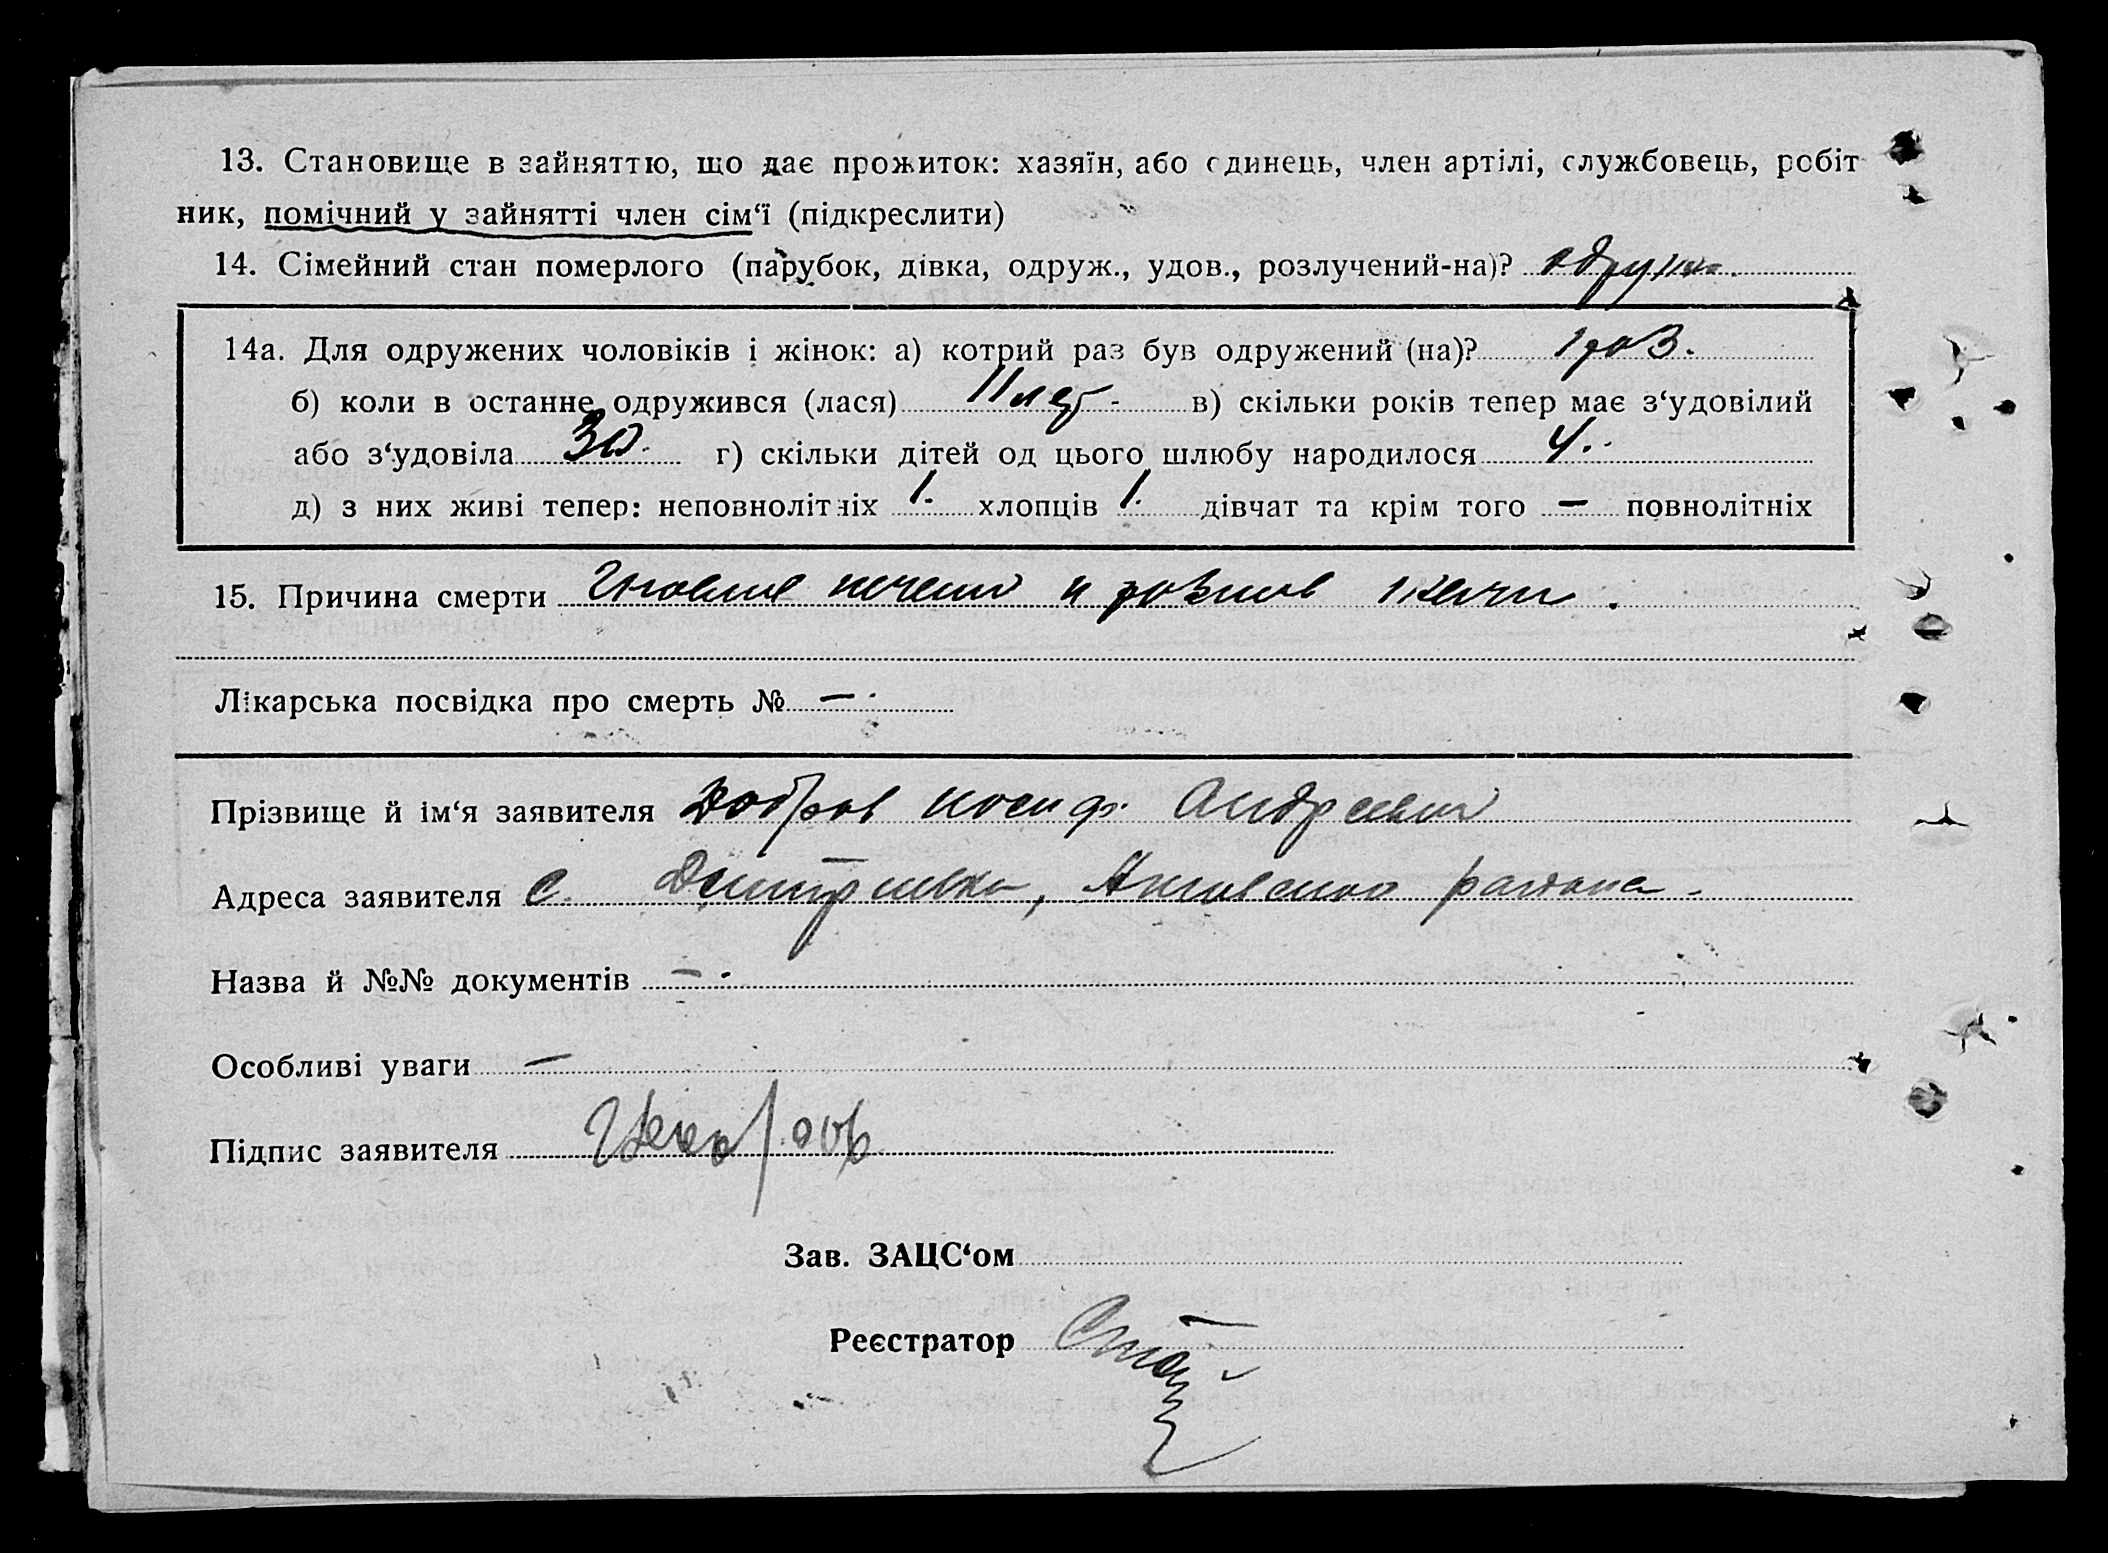 13. Становище в зайняттю, що дає прожиток: хазяїн, або єдинець, член артілі, службовець, робіт
ник, помічний у зайнятті член сім‘ї (підкреслити)
14. Сімейний стан померлого (парубок, дівка, одруж., удов., розлучений-на)? одруж.
14а. Для одружених чоловіків і жінок: а) котрий раз був одружений (на)? 1 раз.
б) коли в останнє одружився (лася) 11 лет в) скільки років тепер має з‘удовілий
або з‘удовіла 30. г) скільки дітей од цього шлюбу народилося 4.
д) з них живі тепер: неповнолітніх 1. хлопців 1. дівчат та крім того — повнолітніх
15. Причина смерти печени и
Лікарська посвідка про смерть № —.
Прізвище й ім‘я заявителя Добров Иосиф Андреевич
Адреса заявителя с. Дмитриевка, района.
Назва й №№ документів —.
Особливі уваги —
Підпис заявителя
Зав. ЗАЦС‘ом
Реєстратор